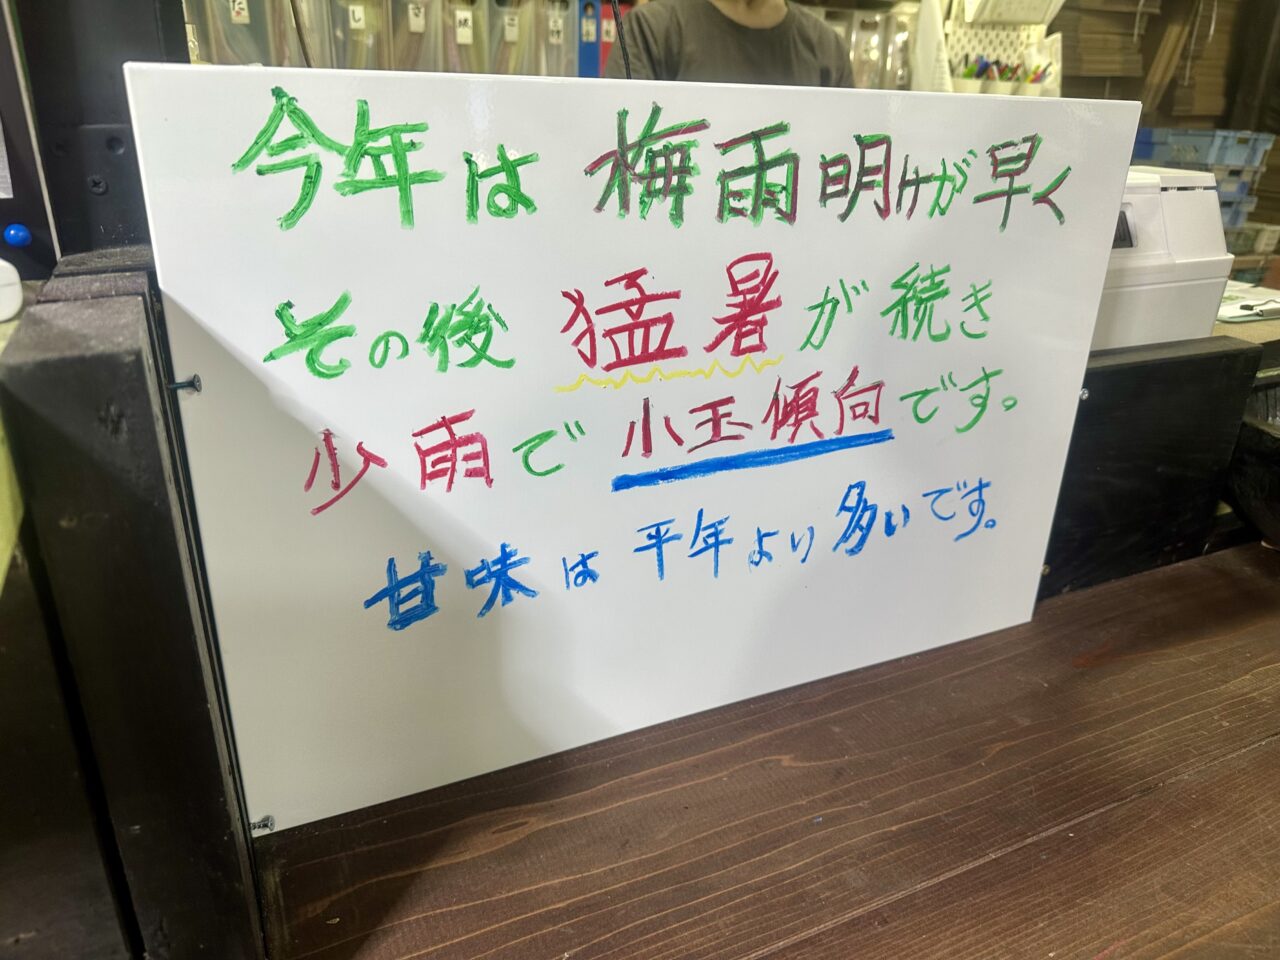 今年は梅雨明けが早く
その後猛暑が続き
少雨で小玉傾向です。
甘味は平年より多いです。